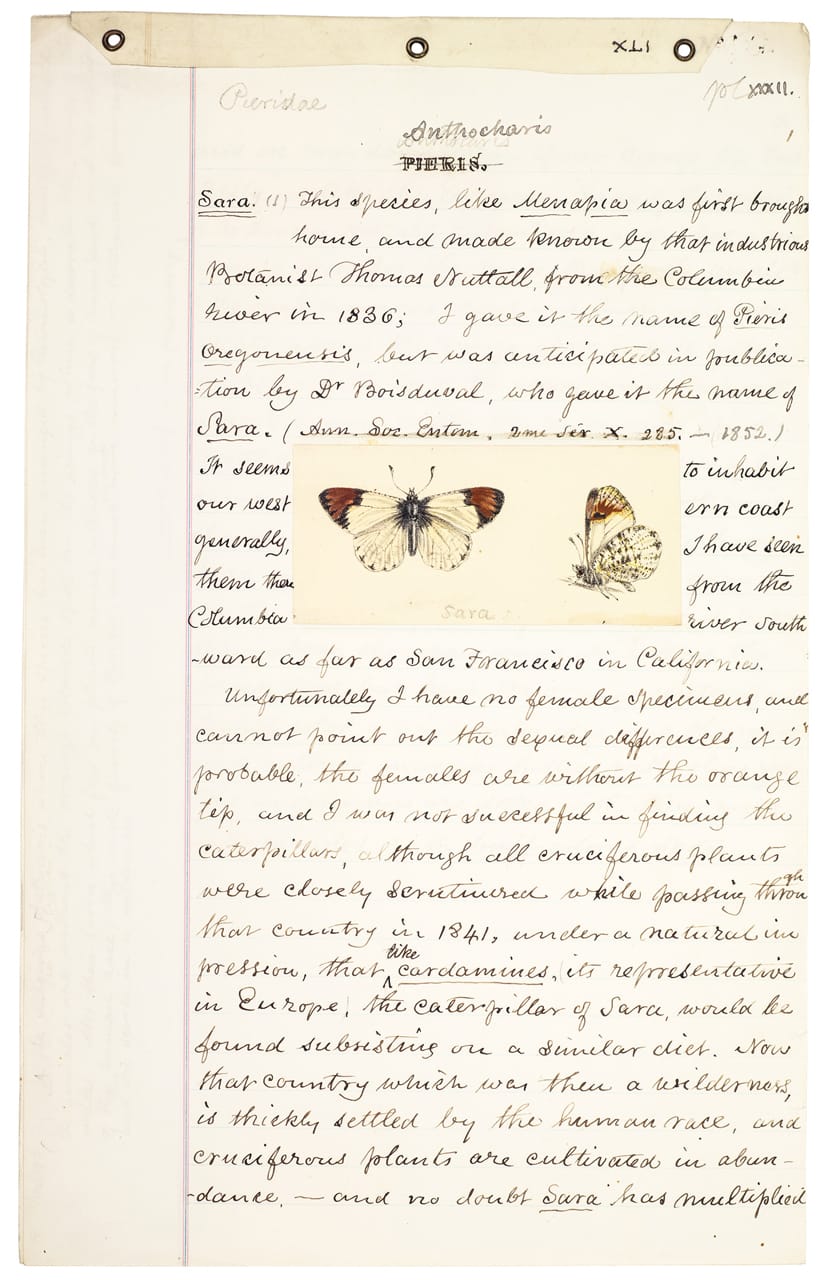 XLI
Pieridae
pl XXXII.
1
Anthocharis
PIERIS.
Sara. (1) This species, like Menapia was first brought
home, and made known by that industrious
Botanist Thomas Nuttall, from the Columbia
river in 1836; I gave it the name of Pieris
Oregonensis, but was anticipated in publica-
-tion by Dr Boisduval, who gave it the name of
Sara. (Ann. Soc. Entom. 2me Sér. X. 285. — 1852.)
It seems to inhabit
our west ern coast
generally, I have seen
them then from the
Columbia river South
Sara.
-ward as far as San Francisco in California.
Unfortunately I have no female specimens, and
cannot point out the sexual differences, it is
probable, the females are without the orange
tip, and I was not successful in finding the
caterpillars, although all cruciferous plants
were closely scrutinized while passing through
that country in 1841, under a natural im
pression, that like cardamines, its representative
in Europe, the caterpillar of Sara, would be
found subsisting on a similar diet. Now
that country which was then a wilderness,
is thickly settled by the human race, and
cruciferous plants are cultivated in abun-
-dance. — and no doubt Sara has multiplied